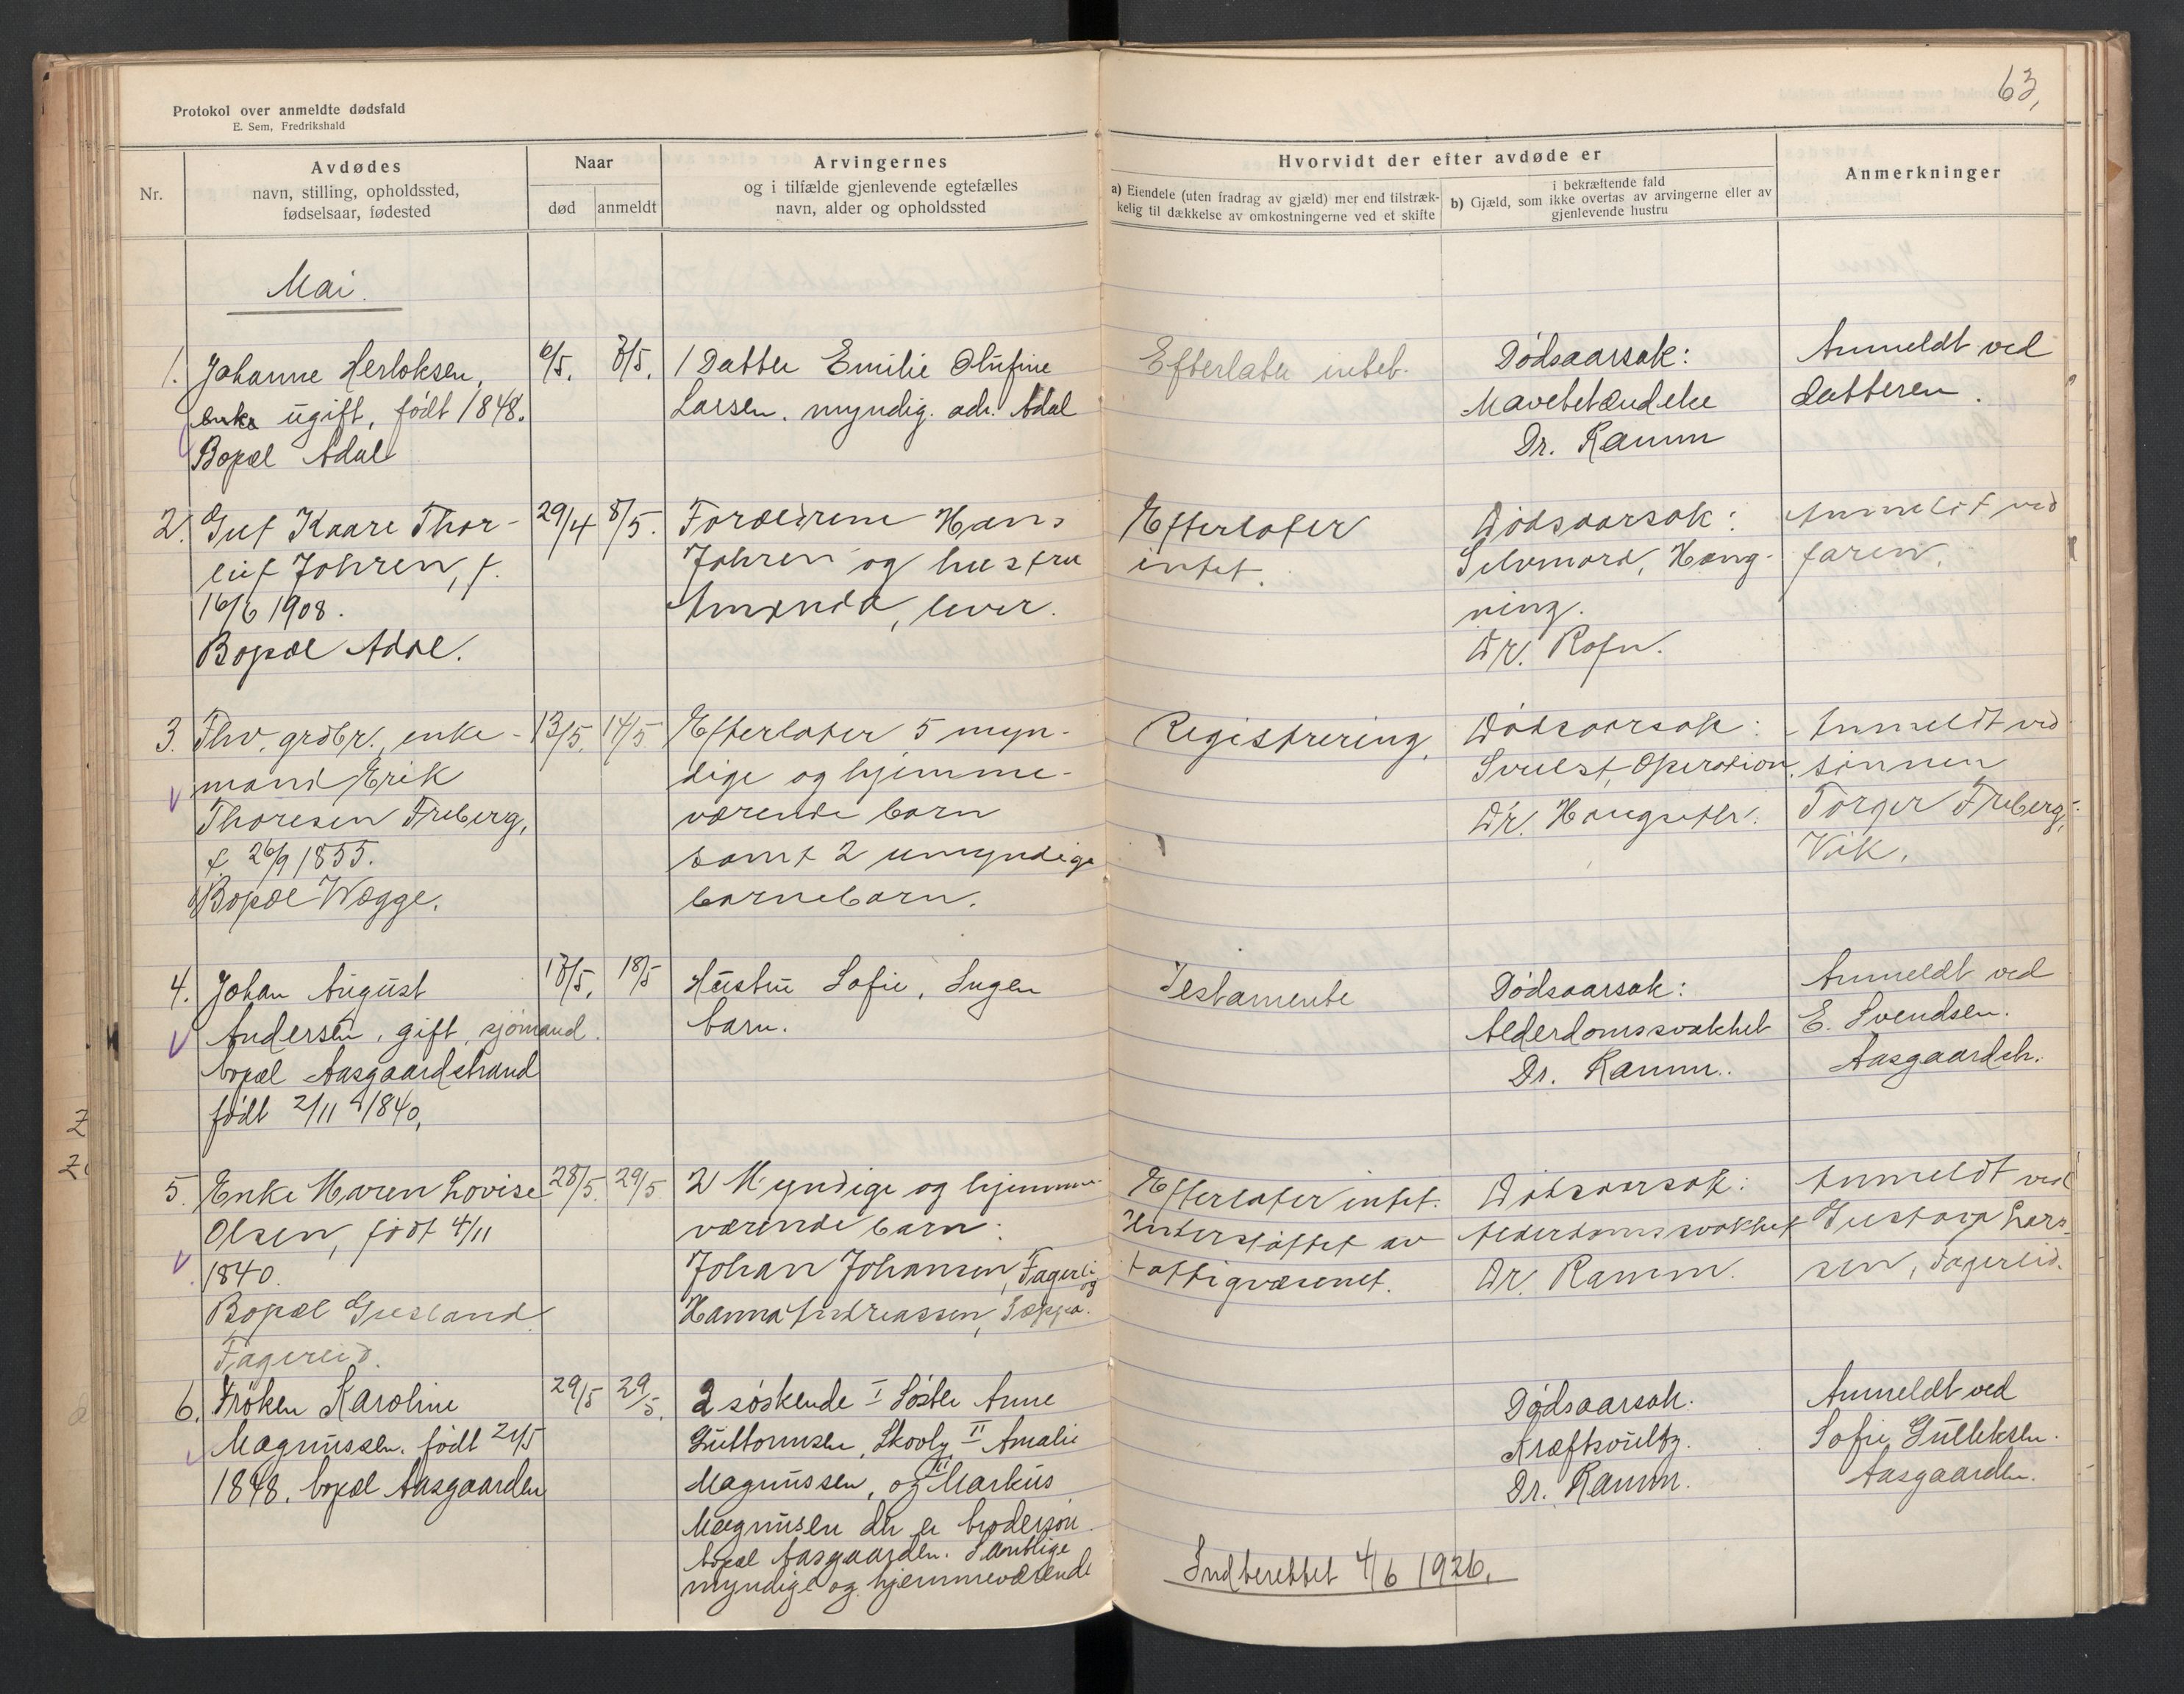 63,
Protokol over anmeldte dødsfald
E. Sem, Fredrikshald
Nr.
Avdødes
navn, stilling, opholdssted,
fødselsaar, fødested
Naar
død
anmeldt
Arvingernes
og i tilfælde gjenlevende egtefælles
navn, alder og opholdssted
Hvorvidt der efter avdøde er
a) Eiendele (uten fradrag av gjæld) mer end tilstræk-
kelig til dækkelse av omkostningerne ved et skifte
i bekræftende fald
b) Gjæld, som ikke overtas av arvingerne eller av
gjenlevende hustru
Anmerkninger
Mai.
1. Johanne Herloksen,
enke ugift, født 1848.
Bopæl Adal
6/5. 7/5.
1 Datter Emilie Olufine
Larsen. myndig. adr. Adal
Efterlater intet.
Dødsaarsak:
Mavebetændelse
Dr. Ramm
Anmeldt ved
datteren.
2. Gut Kaare Thor-
leif Johren, f.
16/6 1908.
Bopæl Adal.
29/4 8/5.
Forældrene Hans
Johren og hustru
Amanda, lever.
Efterlater
intet.
Dødsaarsak:
Selvmord, Hæng-
ning.
Dr. Rafn.
Anmeldt ved
faren.
3. Fhv. grdbr., enke-
mand Erik
Thoresen Freberg,
f. 26/9 1855.
Bopæl Wægge.
13/5. 14/5.
Efterlater 5 myn-
dige og hjemme-
værende barn
samt 2 umyndige
barnebarn.
Registrering.
Dødsaarsak:
Svulst, Operation.
Dr.
Anmeldt ved
sønnen
Torger Freberg,
Vik.
4. Johan August
Andersen, gift, sjømand.
bopæl Aasgaardstrand
født 2/11 1840,
17/5. 18/5
Hustru Sofie, Ingen
barn.
Testamente
Dødsaarsak:
Alderdomssvakhet
Dr. Ramm.
Anmeldt ved
E. Svendsen.
Aasgaardstr.
5. Enke Maren Lovise
Olsen, født 4/11
1840.
Bopæl Gresland
Fagerlid.
28/5. 29/5
2 Myndige og hjemme-
værende barn:
Johan Johansen, Fagerli
og
Hanna Andreassen,
Efterlater intet.
Understøttet av
fattigvæsenet.
Dødsaarsak:
Alderdomssvakhet
Dr. Ramm.
Anmeldt ved
Gustava Lars-
sen, Fagerlid.
6. Frøken Karoline
Magnussen. født 21/5
1848. bopæl Aasgaarden
29/5 29/5.
2 søskende I Søster Anne
Guttormsen, Skovly II Amalie
Magnussen, og III Markus
Magnussen der er brodersøn.
bopæl Aasgaarden. Samtlige
myndige og hjemmeværende
Dødsaarsak.
Kræftsvulst.
Dr. Ramm.
Anmeldt ved
Sofie Gulliksen.
Aasgaarden.
Indberettet 4/6 1926.